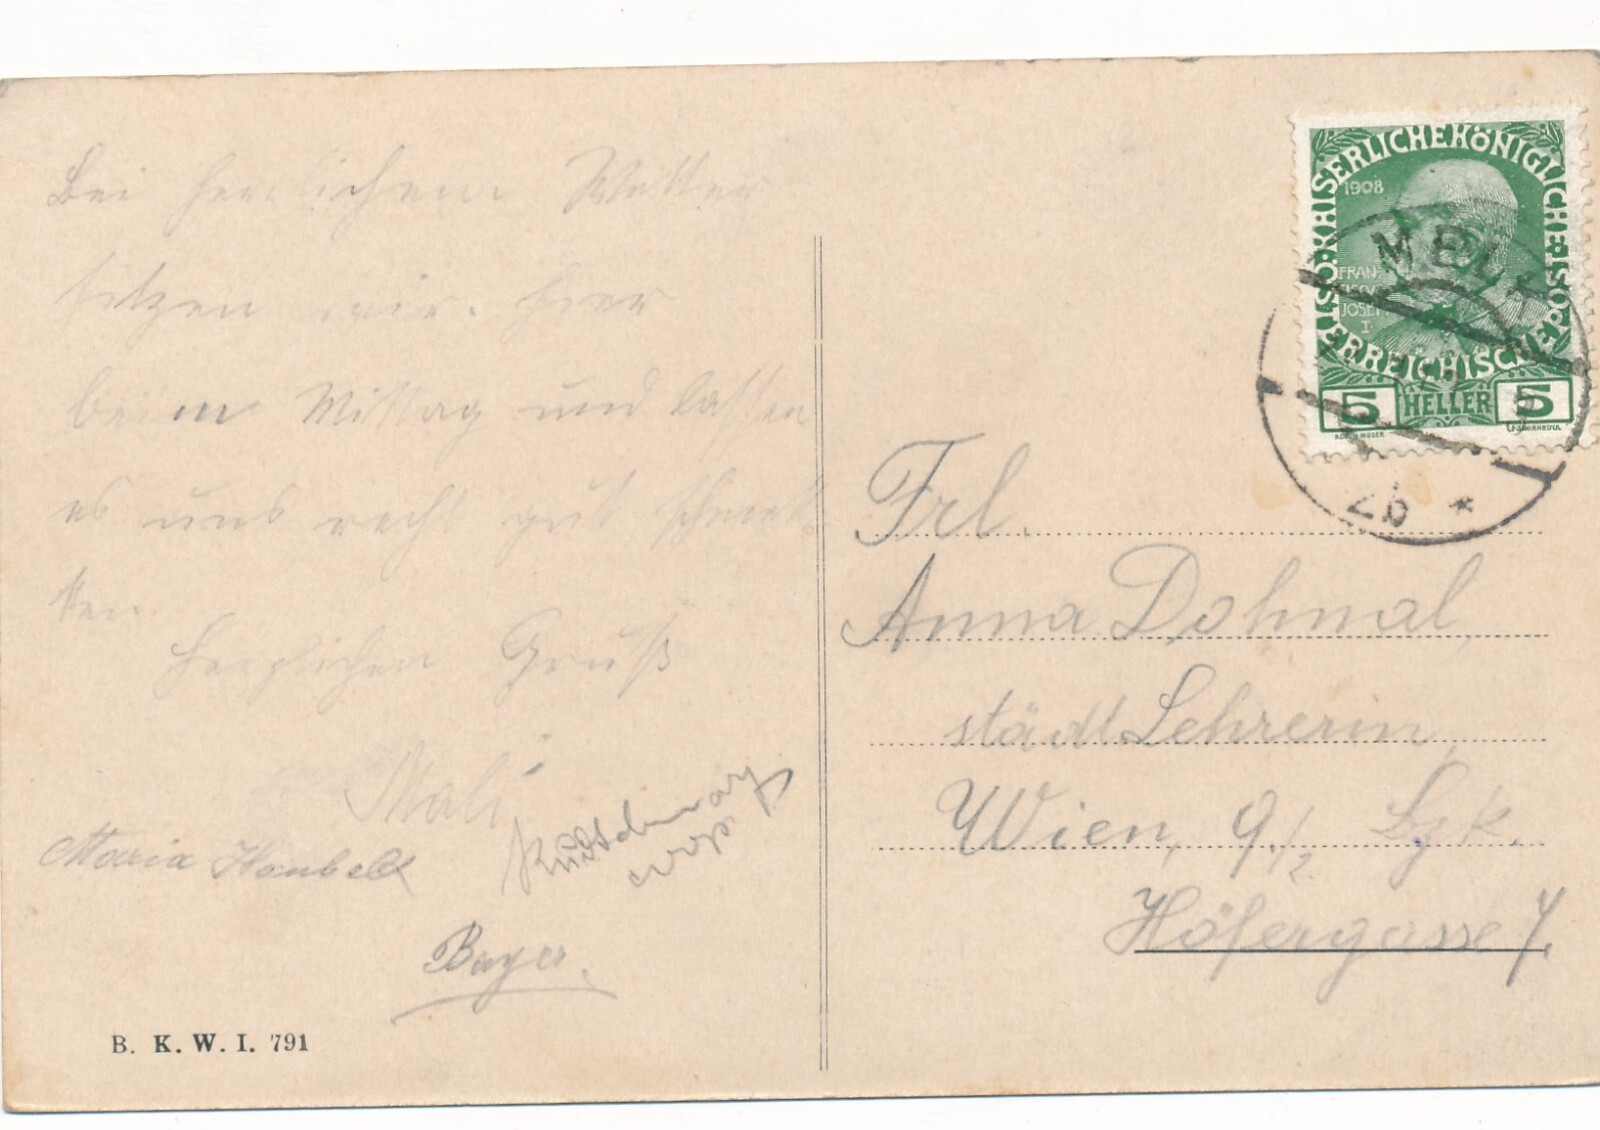 Bei herrlichem Wetter
sitzen wir hier
beim Mittag und lassen
es uns recht gut schmek-
ken.
Herzlichen Gruß
Mali
Maria
Bayer.
B. K. W. I. 791
KAISERLICHE KÖNIGLICHE ÖSTERREICHISCHE
1908
FRAN-
JOSEPH
I
5 HELLER 5
MELK
2b *
Frl.
Anna Dohnal,
städt Lehrerin,
Wien, 9./2. Bzk.
Höfergasse